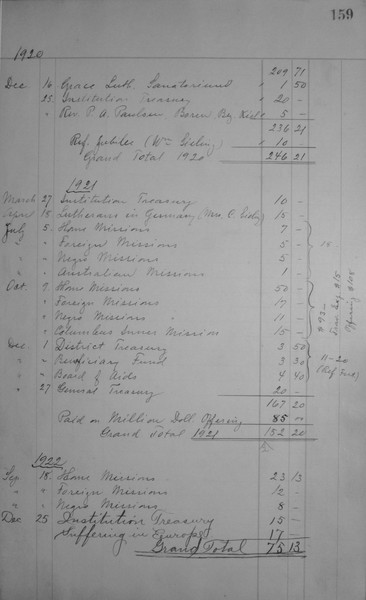 159
1920
209 71
Dec 16 Grace Luth. Sanatorium " 1 50
" 25 Institution Treasury " 20 -
" " Rev. P. A. Paulsen, Boren, Bez. Kiel " 5 -
236 21
Ref. Jubilee (Wm ) " 10 -
Grand Total 1920 246 21
1921
March 27 Institution Treasury 10 -
April 15 Lutherans in Germany (Mrs. C. ) 15 -
July 5 Home Missions 7 -
" " Foreign Missions 5 -
" " Negro Missions 5 -
" " Australian Missions 1 - 18
Oct. 9 Home Missions 50 -
" " Foreign Missions 17 -
" " Negro Missions " 11 -
" " Columbus Inner Mission 15 -
$93-
Offering $
Dec 1 District Treasury 3 50
" " Beneficiary Fund 3 30
" " Board of Aids 4 40
11-20
(Ref. )
" 27 General Treasury 20 -
167 20
Paid on Million Doll. Offering 85 00
Grand Total 1921 152 20
1922
Sep. 18 Home Missions 23 13
" " Foreign Missions 12 -
" " Negro Missions 8 -
Dec 25 Institution Treasury 15 -
Suffering in Europe 17 -
Grand Total 75 13